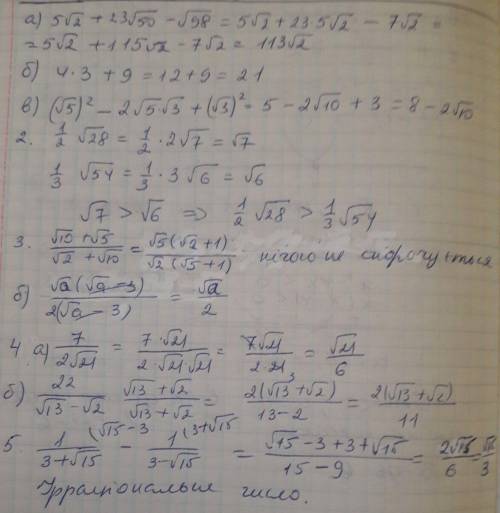 а) 5√2 + 23√50 - √98 = 5√2 + 23·5√2 - 7√2 =
= 5√2 + 115√2 - 7√2 = 113√2
б) 4·3 + 9 = 12 + 9 = 21
в) (√5)² - 2√5·√3 + (√3)² = 5 - 2√10 + 3 = 8 - 2√10
2. 1/2 √28 = 1/2 · 2√7 = √7
1/3 √54 = 1/3 · 3√6 = √6
√7 > √6 => 1/2 √28 > 1/3 √54
3. (√10 + √5)/(√2 + √10) = √5(√2 + 1)/√2(√5 + 1) нічого не скорочується
б) √a(√a - 3)/2(√a - 3) = √a/2
4 а) 7/2√21 = 7·√21/2·√21·√21 = 7√21/2·21 3 = √21/6
б) 22/(√13 - √2) (√13 + √2)/(√13 + √2) = 2(√13 + √2)/(13 - 2) = 2(√13 + √2)/11
5. 1/(3 + √15) (√15 - 3 - 1/(3 - √15) (3 + √15 = (√15 - 3 + 3 + √15)/(15 - 9) = 2√15/6 = √15/3
Ірраціональне число.